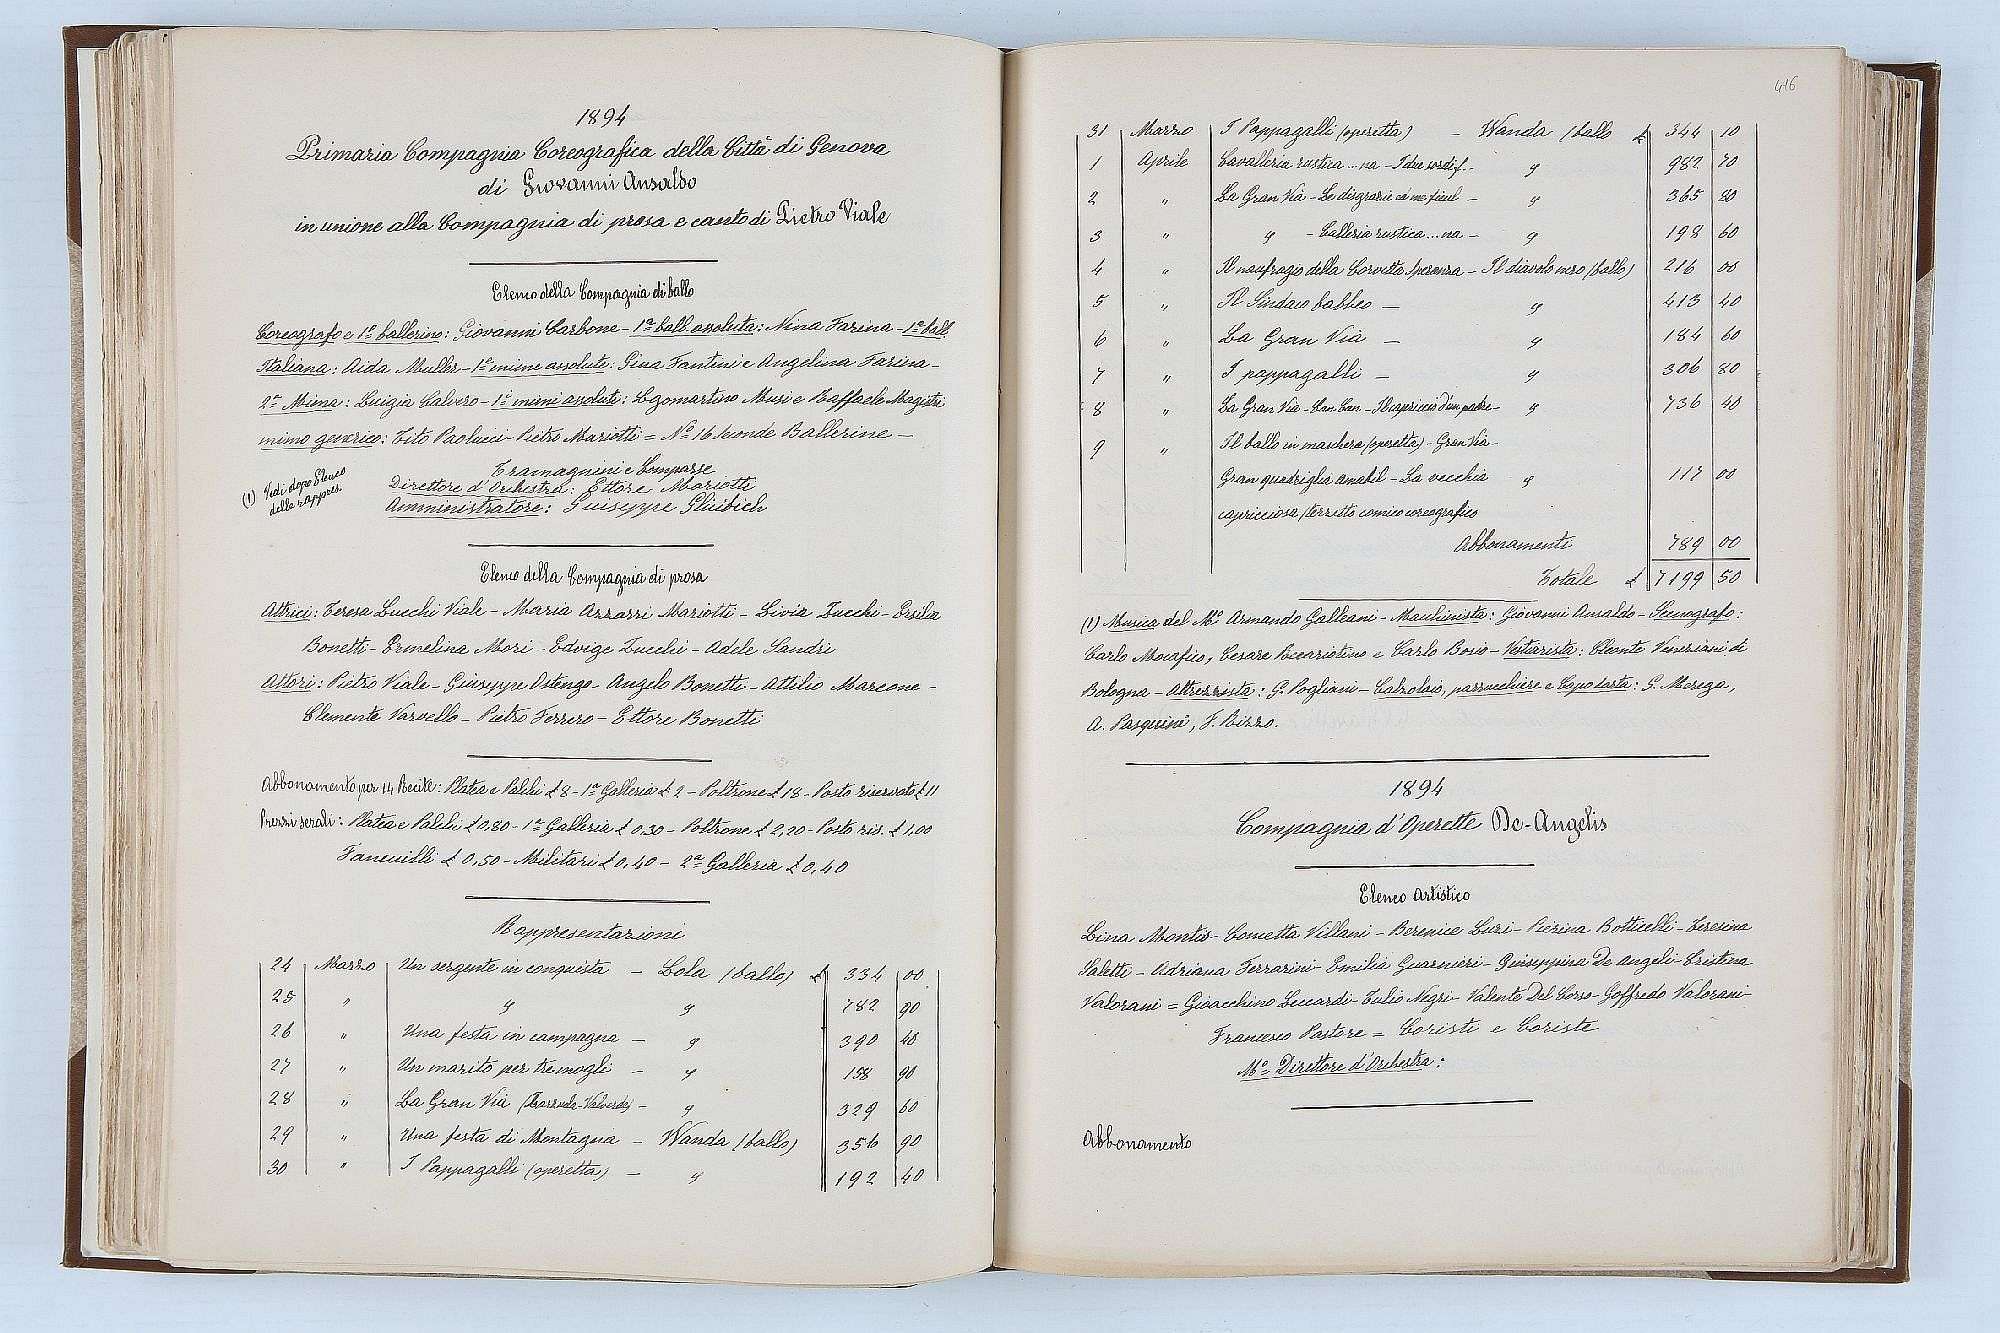 1894
Primaria Compagnia Coreografica della Città di Genova
di Giovanni Ansaldo
in unione alla Compagnia di prosa e canto di Pietro Viale
Elenco della Compagnia di ballo
Coreografo e 1º ballerino: Giovanni Carbone - 1ª ball. assoluta: Nina Farina - 1ª ball.
Italiana: Aida Muller - 1e mime assolute: Gina Fantini e Angelina Farina -
2ª Mima: Luigia Calvero - 1i mimi assoluti: Legomartino Musi e Raffaele Magistri
mimo generico: Tito Paolucci - Pietro Mariotti = Nº 16 seconde Ballerine -
Tramagnini e Comparse
(1) Vedi dopo Elenco
delle rappres.
Direttore d'Orchestra: Ettore Mariotti
Amministratore: Guiseppe Gliubich
Elenco della Compagnia di prosa
Attrici: Teresa Zucchi Viale - Maria Azzarri Mariotti - Livia Zucchi - Ersilia
Bonetti - Ermelina Mori - Edvige Zucchi - Adele Sandri
Attori: Pietro Viale - Giuseppe Ostengo - Angelo Bonetti - Attilio Marcone -
Clemente Varvello - Pietro Ferrero - Ettore Bonetti
Abbonamento per 14 Recite: Platea e Palchi £ 8 - 1ª Galleria £ 2 - Poltrone £ 18 - Posto riservato £ 11
Prezzi serali: Platea e Palchi £ 0,80 - 1ª Galleria £ 0,30 - Poltrone £ 2,20 - Posto ris. £ 1,00
Fanciulli £ 0,50 - Militari £ 0,40 - 2ª Galleria £ 0,40
Rappresentazioni
24 Marzo Un sergente in conquista - Lola (ballo) £ 334 00
25 " " " 782 90
26 " Una festa in campagna - " 390 40
27 " Un marito per tre mogli - " 158 90
28 " La Gran Via - " 329 60
29 " Una festa di Montagna - Wanda (ballo) 356 90
30 " I Pappagalli (operetta) - " 192 40
416
31 Marzo I Pappagalli (operetta) - Wanda (ballo £ 344 10
1 Aprile Cavalleria rustica...na - I due sordi f.- " 982 70
2 " La Gran Via - Le disgrazie " 365 80
3 " " - Calleria rustica...na - " 198 60
4 " Il naufragio della Corvetta Speranza - Il diavolo nero (ballo) 216 00
5 " Il Sindaco babbeo - " 413 40
6 " La Gran Via - " 184 60
7 " I pappagalli - " 306 80
8 " La Gran Via - Can Can - Il capriccio d'un padre - " 736 40
9 " Il ballo in maschera (operetta) - Gran Via -
Gran quadriglia Amabil - La vecchia " 117 00
capricciosa (terzetto comico coreografico
Abbonamenti 789 00
Totale £ 7199 50
(1) Musica del Mº Armando Galleani - Macchinista: Giovanni Ansaldo - Scenografo:
Carlo Mocafico, Cesare e Carlo Bosio - Vestiarista: Cleante Veneziani di
Bologna - Attrezzista: G. Pogliani - Calzolaio, parrucchiere e Capo tarta: G. Merega,
A. Pasquina, F. Rizzo.
1894
Compagnia d'Operette De-Angelis
Elenco Artistico
Lina Montis - Cometta Villani - Berenice Luzi - Pierina Botticelli - Teresina
Valetti - Adriana Ferrarini - Emilia Guarnieri - Guiseppina De Angeli - Cristina
Valorani = Gioacchino Leccardi - Tulio Negri - Valente Del Corso - Goffredo Valorani -
Francesco Pastore = Coristi e Coriste
Mº Direttore d'Orchestra:
Abbonamento